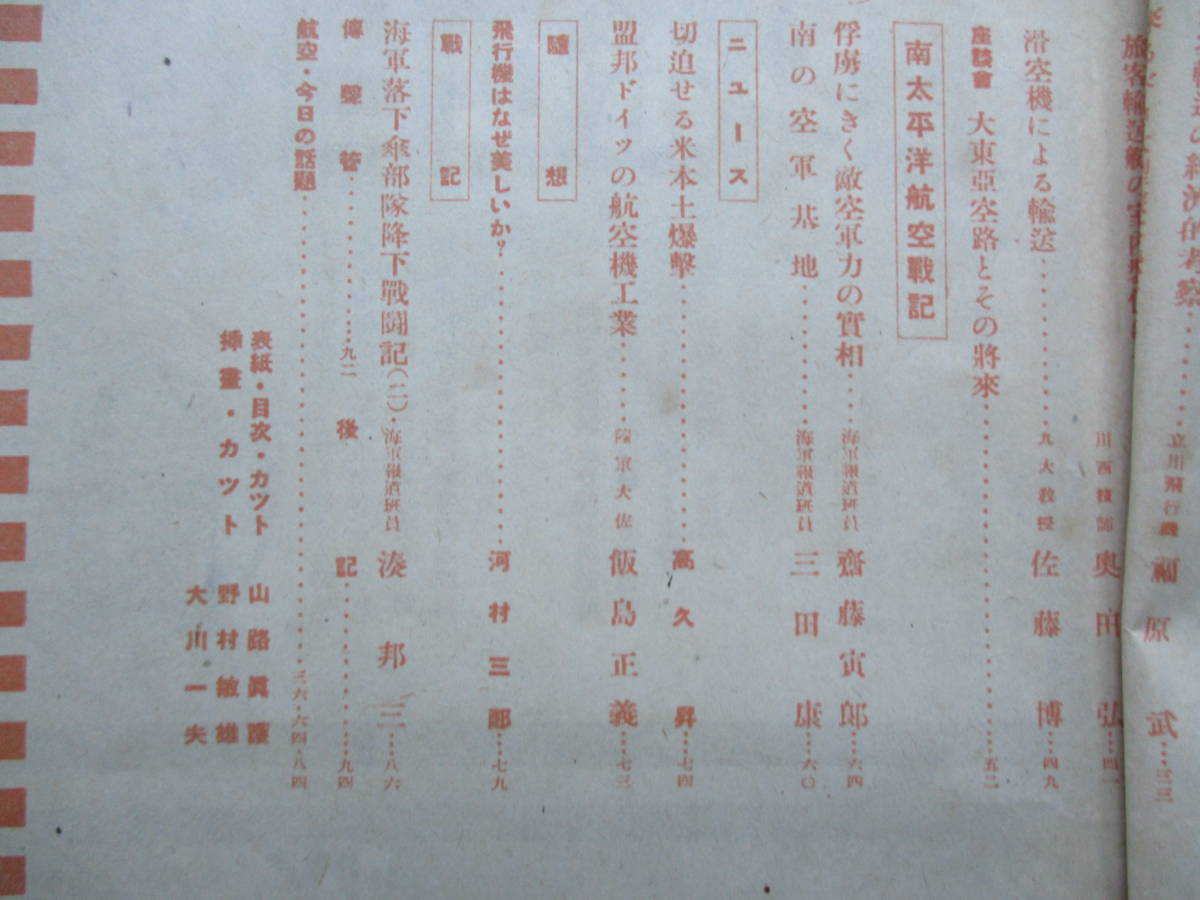 立川飛行機 福原武…三三
旅客輸送機の 川西技師 奥田弘…四一
滑空機による輸送……九大教授 佐藤博…四九
座談會 大東亞空路とその將來……五二
南太平洋航空戰記
俘虜にきく敵空軍力の實相……海軍報道班員 齋藤寅郎…六四
南の空軍基地……海軍報道班員 三田康…六〇
ニュース
切迫せる米本土爆擊……高久昇…七四
盟邦ドイツの航空機工業……陸軍大佐 飯島正義…七三
隨想
飛行機はなぜ美しいか？……河村三郎…七九
戰記
海軍落下傘部隊降下戰闘記(二)・海軍報道班員 湊邦三…八六
傳聲管……九二 後記……九四
航空・今日の話題……三六・六四・八四
表紙・目次・カット 山路眞護
挿畫・カット 野村敏雄
大川一夫